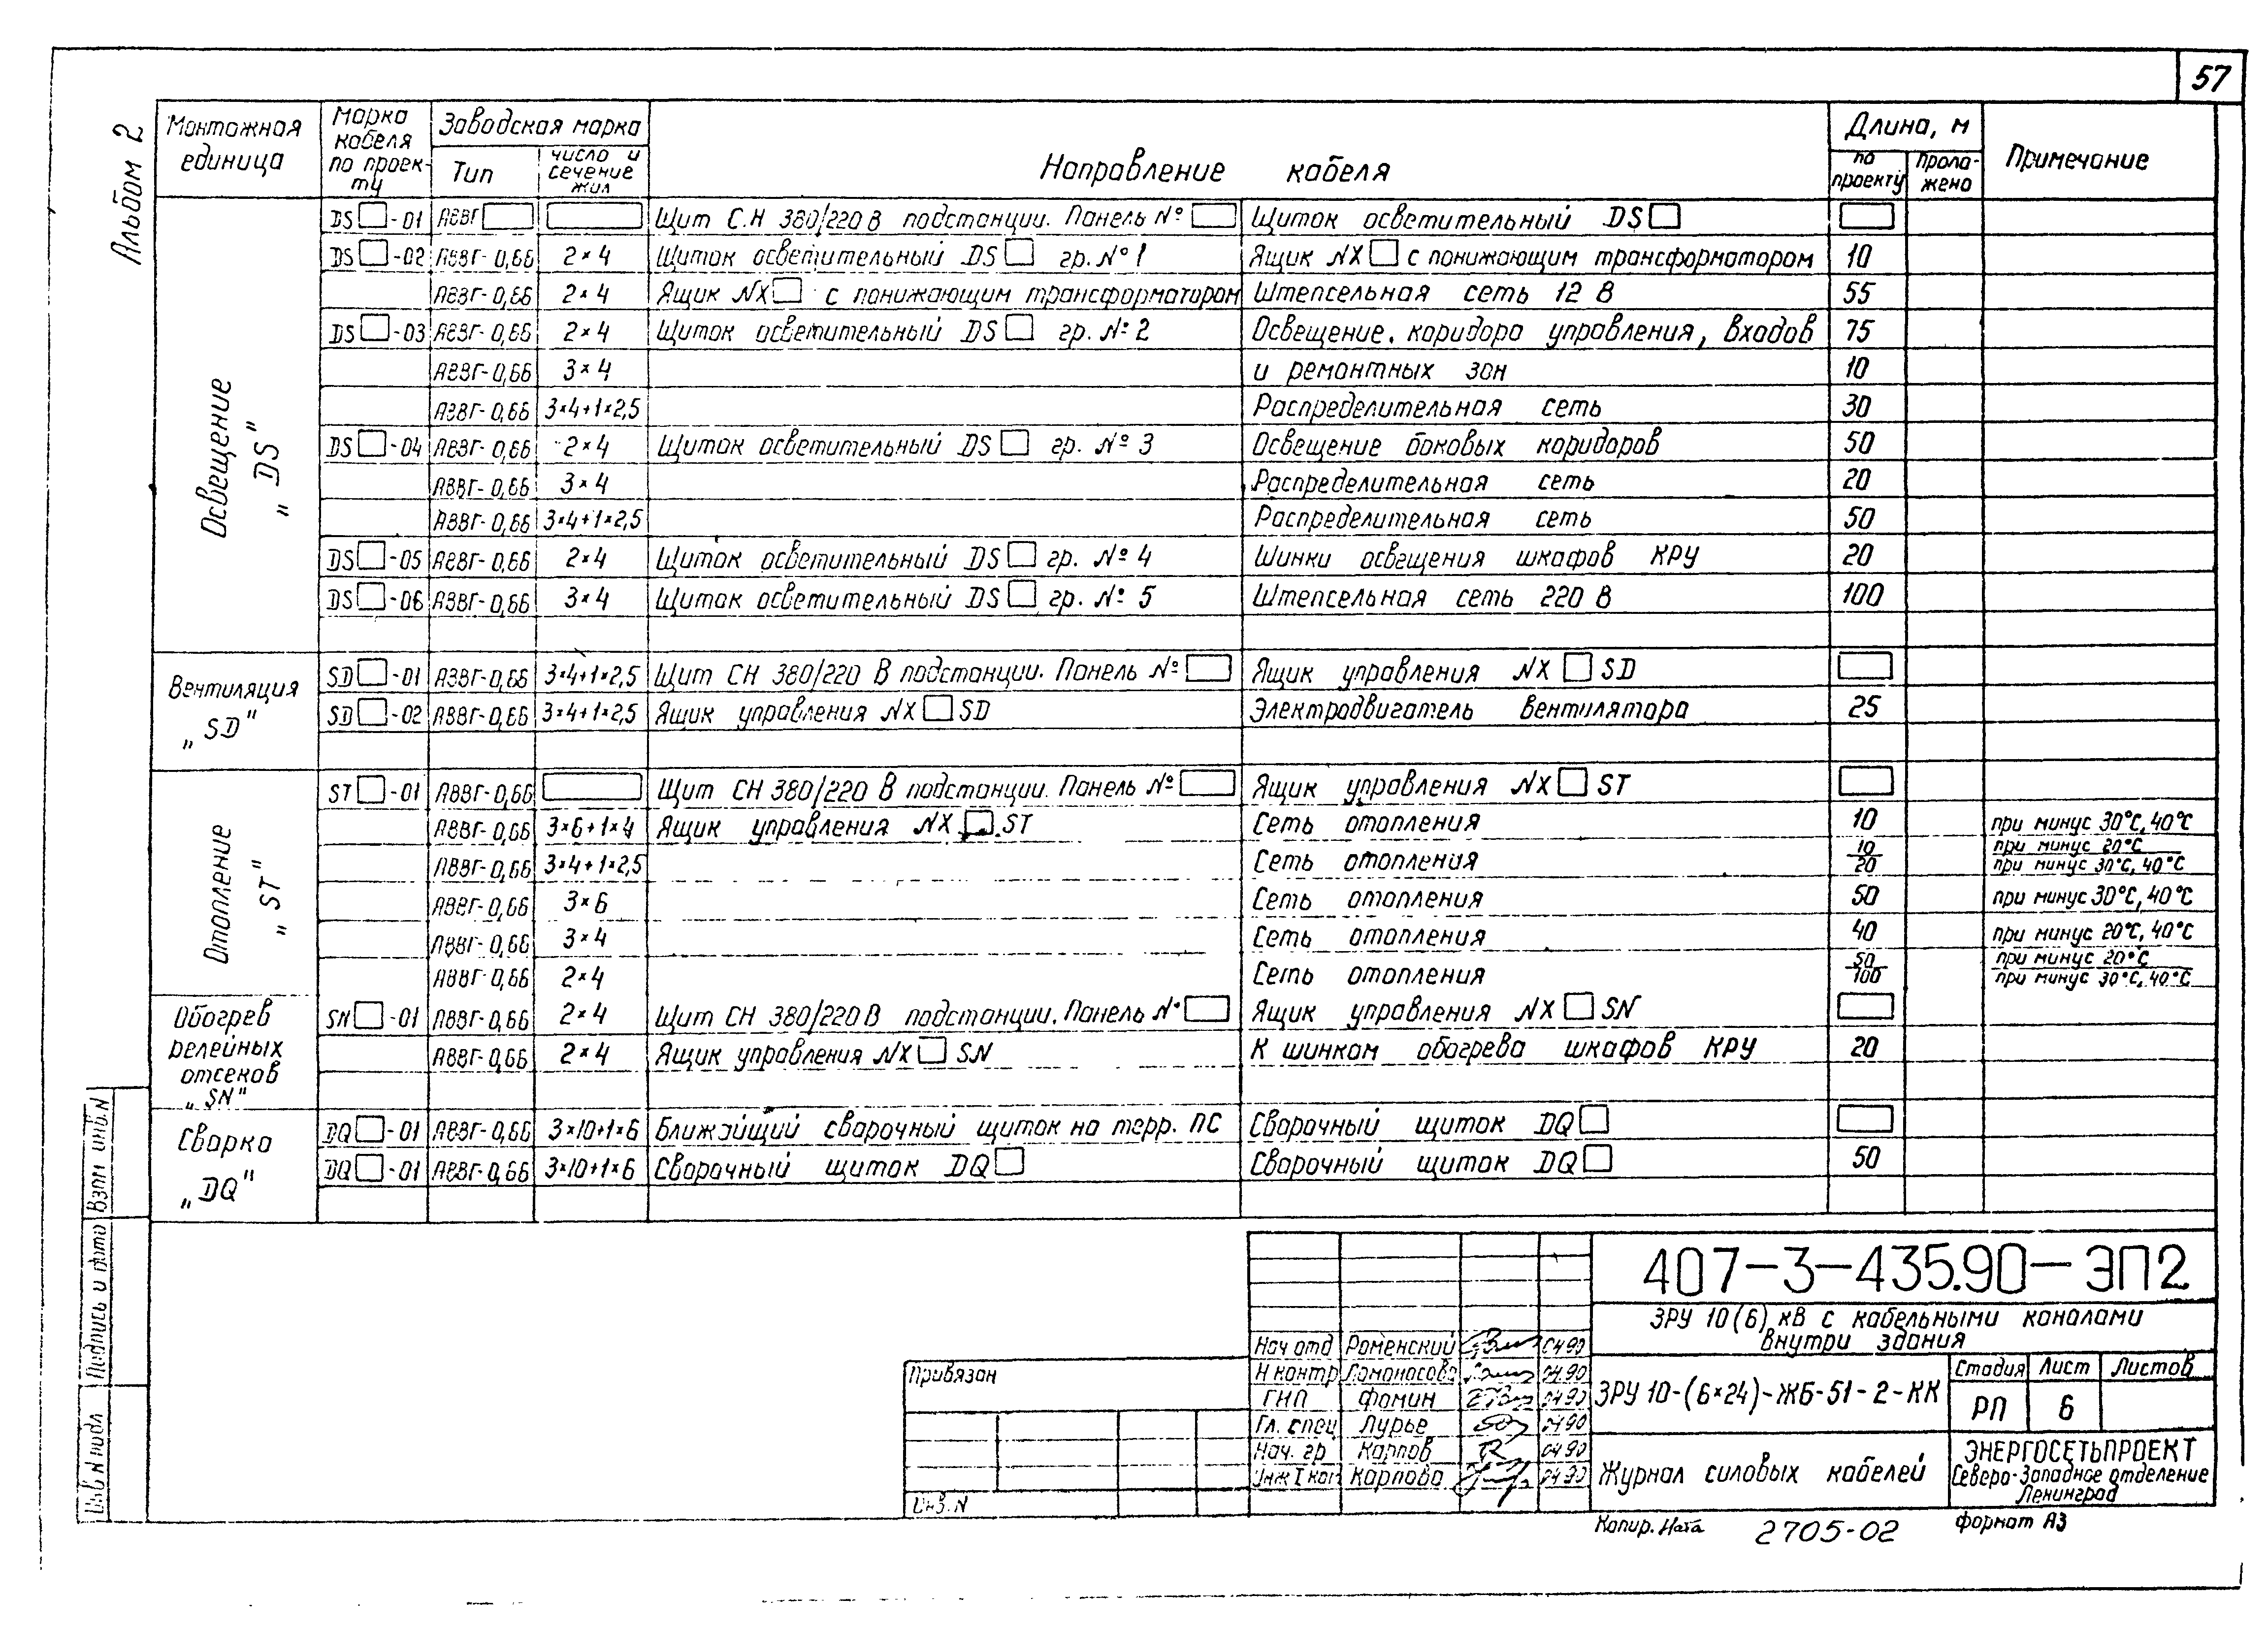 57
Альбом 2
Монтажная единица
Марка кабеля по проекту
Заводская марка
Тип
число и сечение жил
Направление кабеля
Длина, м
по проекту
проложено
Примечание
Освещение "DS"
DS□-01 АВВГ□ □ Щит С.Н 380/220 В подстанции. Панель №□ Щиток осветительный DS□ □
DS□-02 АВВГ-0,66 2×4 Щиток осветительный DS□ гр. №1 Ящик NX□ с понижающим трансформатором 10
АВВГ-0,66 2×4 Ящик NX□ с понижающим трансформатором Штепсельная сеть 12 В 55
DS□-03 АВВГ-0,66 2×4 Щиток осветительный DS□ гр. №2 Освещение. коридора управления, входов 75
АВВГ-0,66 3×4 и ремонтных зон 10
АВВГ-0,66 3×4+1×2,5 Распределительная сеть 30
DS□-04 АВВГ-0,66 2×4 Щиток осветительный DS□ гр. №3 Освещение боковых коридоров 50
АВВГ-0,66 3×4 Распределительная сеть 20
АВВГ-0,66 3×4+1×2,5 Распределительная сеть 50
DS□-05 АВВГ-0,66 2×4 Щиток осветительный DS□ гр. №4 Шинки освещения шкафов КРУ 20
DS□-06 АВВГ-0,66 3×4 Щиток осветительный DS□ гр. №5 Штепсельная сеть 220 В 100
Вентиляция "SD"
SD□-01 АВВГ-0,66 3×4+1×2,5 Щит СН 380/220 В подстанции. Панель №□ Ящик управления NX□SD □
SD□-02 АВВГ-0,66 3×4+1×2,5 Ящик управления NX□SD Электродвигатель вентилятора 25
Отопление "ST"
ST□-01 АВВГ-0,66 □ Щит СН 380/220 В подстанции. Панель №□ Ящик управления NX□ST □
АВВГ-0,66 3×6+1×4 Ящик управления NX□ST Сеть отопления 10 при минус 30°С, 40°С
АВВГ-0,66 3×4+1×2,5 Сеть отопления 10/20 при минус 20°С / при минус 30°С, 40°С
АВВГ-0,66 3×6 Сеть отопления 50 при минус 30°С, 40°С
АВВГ-0,66 3×4 Сеть отопления 40 при минус 20°С, 40°С
АВВГ-0,66 2×4 Сеть отопления 50/100 при минус 20°С / при минус 30°С, 40°С
Обогрев релейных отсеков "SN"
SN□-01 АВВГ-0,66 2×4 Щит СН 380/220 В подстанции. Панель №□ Ящик управления NX□SN □
АВВГ-0,66 2×4 Ящик управления NX□SN К шинкам обогрева шкафов КРУ 20
Сварка "DQ"
DQ□-01 АВВГ-0,66 3×10+1×6 Ближайщий сварочный щиток на терр. ПС Сварочный щиток DQ□ □
DQ□-01 АВВГ-0,66 3×10+1×6 Сварочный щиток DQ□ Сварочный щиток DQ□ 50
Взам инв.N
Подпись и дата
Инв N подл
Привязан
Инв.N
407-3-435.90-ЭП2
ЗРУ 10(6) кВ с кабельными каналами
внутри здания
Нач отд Роменский 04.90
Н контр Ломоносова 04.90
ГИП Фомин 04.90
Гл. спец Лурье 04.90
Нач. гр Карпов 04.90
Инж I кат Карпова 04.90
ЗРУ 10-(6×24)-ЖБ-51-2-КК
Стадия Лист Листов
РП 6
Журнал силовых кабелей
ЭНЕРГОСЕТЬПРОЕКТ
Северо-Западное отделение
Ленинград
Копир. Ната 2705-02 формат А3